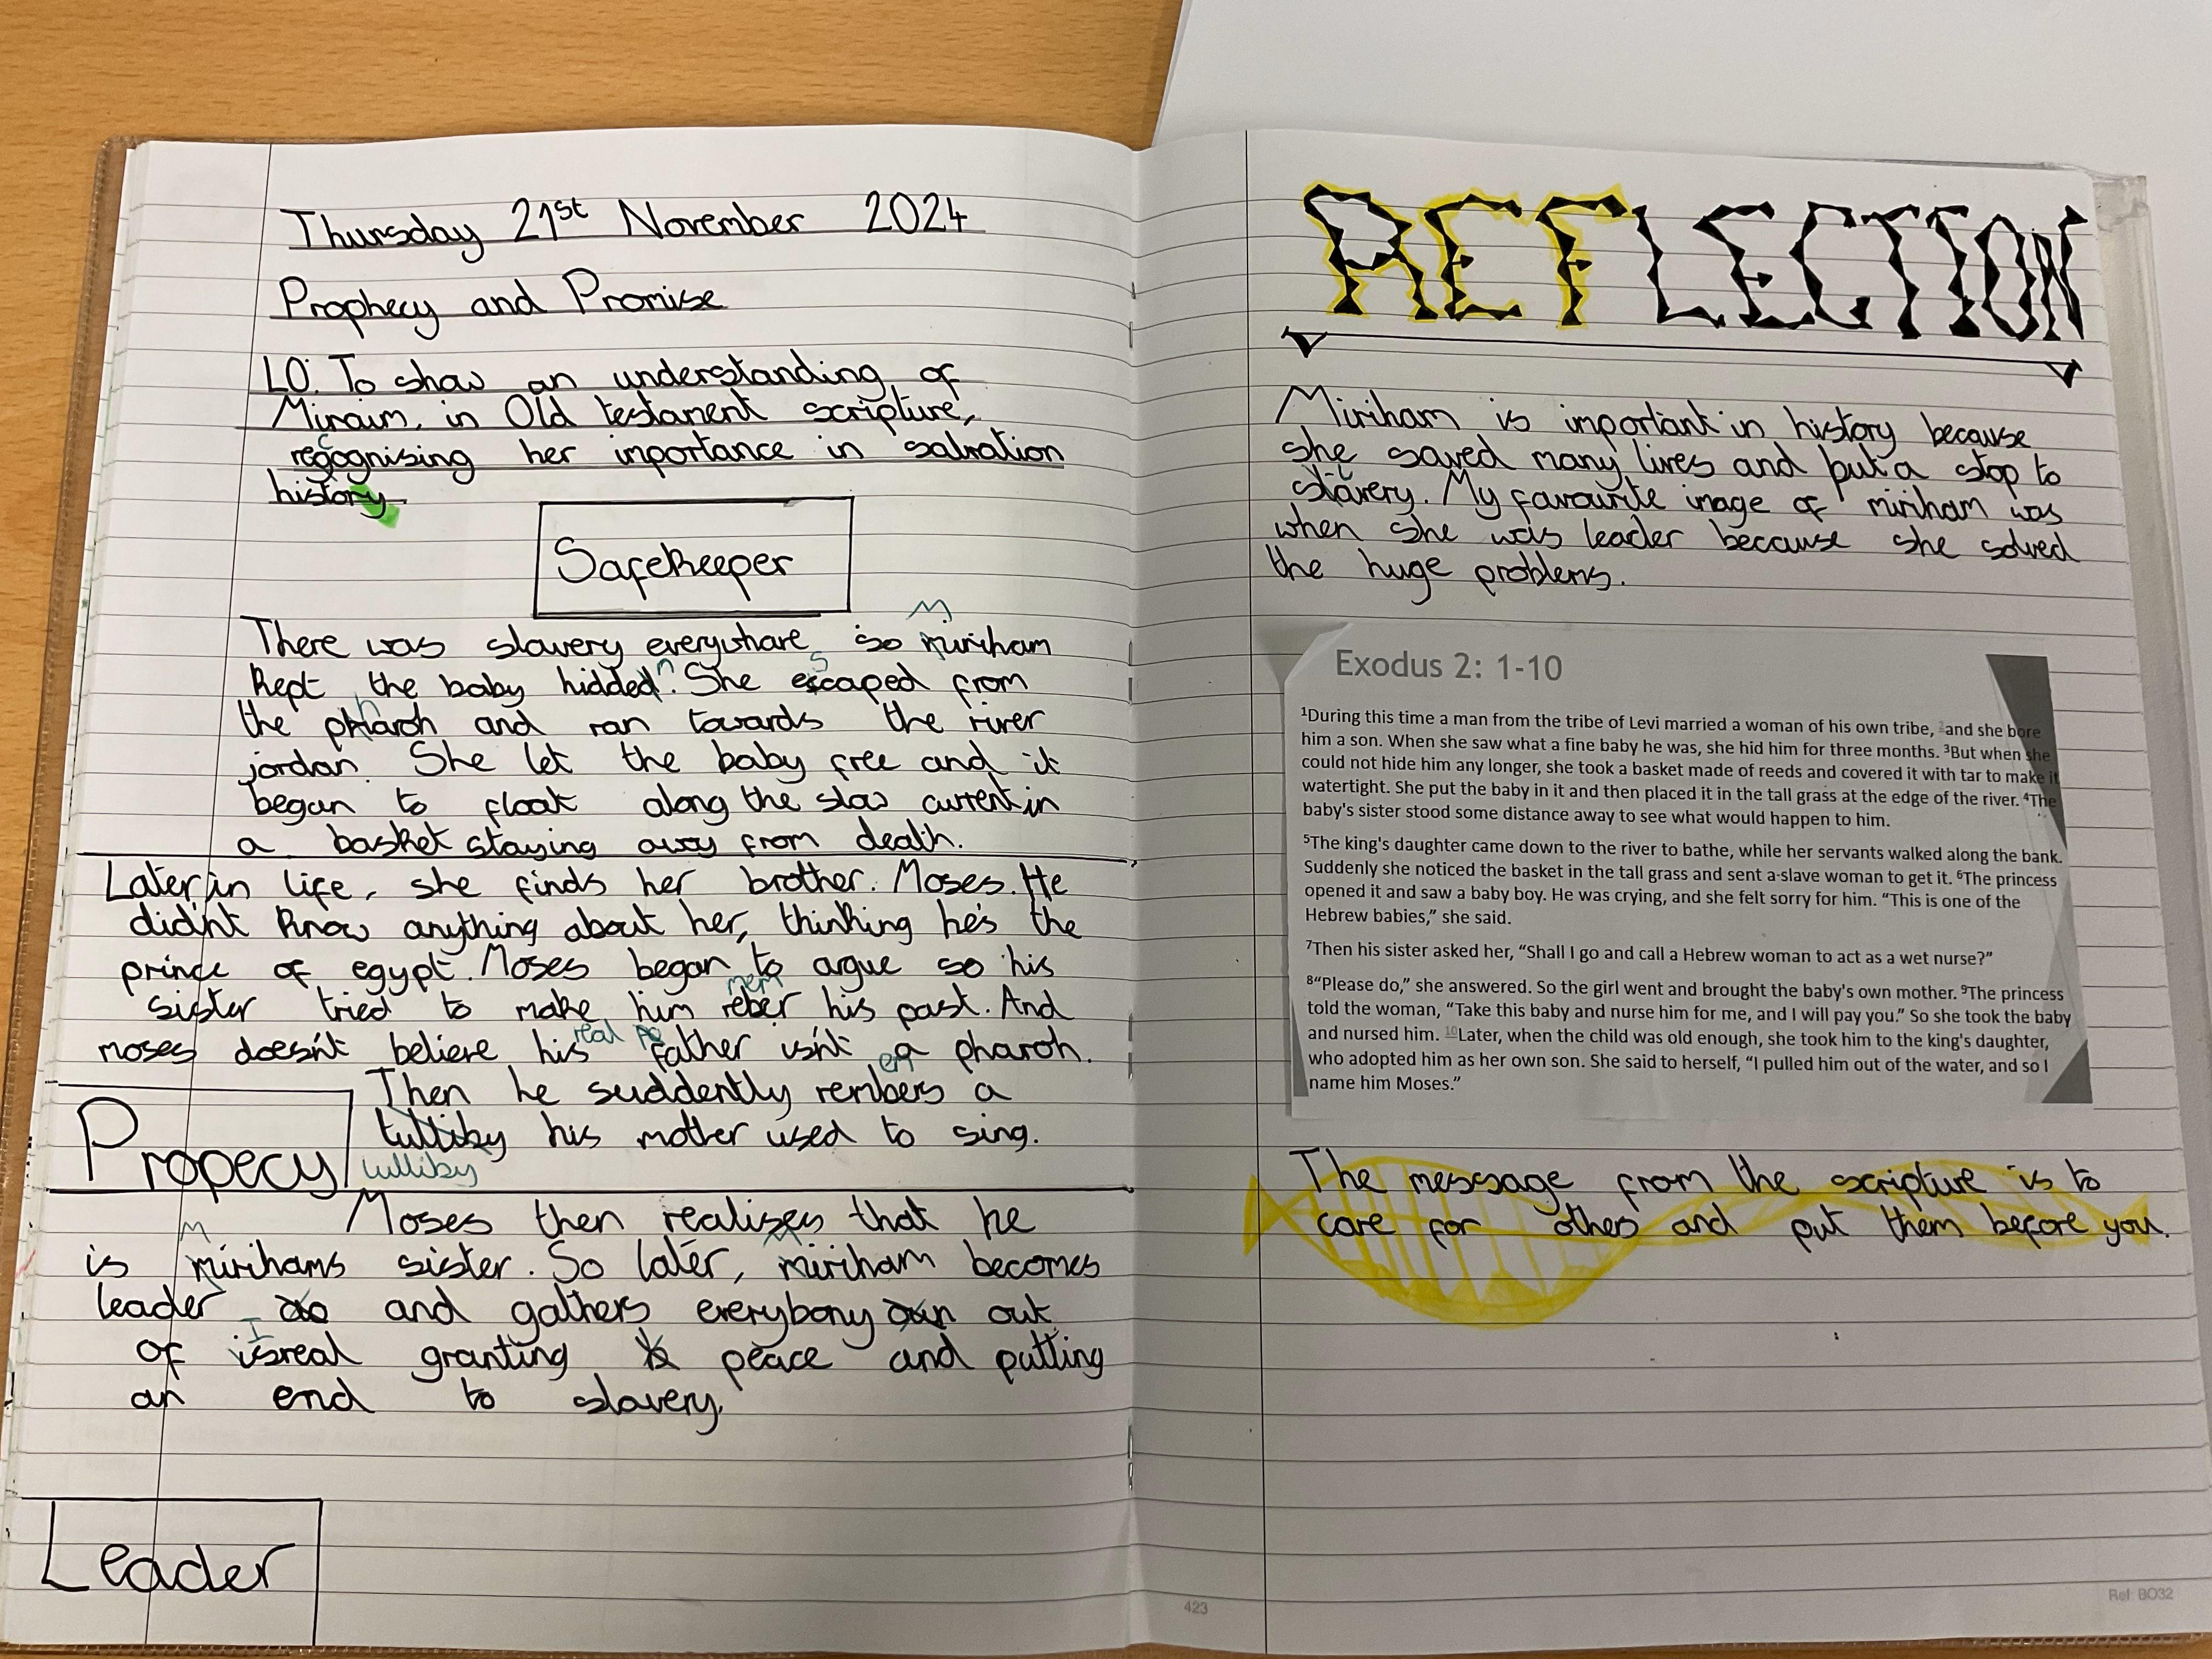 Thursday 21st November 2024
Prophecy and Promise
LO: To show an understanding of
Miraim, in Old testament scripture,
recognising her importance in salvation
history.
Safekeeper
There was slavery everywhare so Miriham
kept the baby hidden. She escaped from
the pharoh and ran towards the river
jordan. She let the baby free and it
began to float along the slow current in
a basket staying away from death.
Later in life, she finds her brother. Moses. He
didn't know anything about her, thinking he's the
prince of egypt. Moses began to argue so his
sister tried to make him remember his past. And
moses doesn't believe his real father isn't a pharoh.
Then he suddently remembers a
lulliby his mother used to sing.
Propecy
lulliby
Moses then realises that he
is Mirihams sister. So later, Miriham becomes
leader and gathers everybony out
of Isreal granting peace and putting
an end to slavery.
Leader
REFLECTION
Miriham is important in history because
she saved many lives and put a stop to
slavery. My favourite image of miriham was
when she was leader because she solved
the huge problems.
Exodus 2: 1-10
¹During this time a man from the tribe of Levi married a woman of his own tribe, ²and she bore
him a son. When she saw what a fine baby he was, she hid him for three months. ³But when she
could not hide him any longer, she took a basket made of reeds and covered it with tar to make it
watertight. She put the baby in it and then placed it in the tall grass at the edge of the river. ⁴The
baby's sister stood some distance away to see what would happen to him.
⁵The king's daughter came down to the river to bathe, while her servants walked along the bank.
Suddenly she noticed the basket in the tall grass and sent a slave woman to get it. ⁶The princess
opened it and saw a baby boy. He was crying, and she felt sorry for him. “This is one of the
Hebrew babies,” she said.
⁷Then his sister asked her, “Shall I go and call a Hebrew woman to act as a wet nurse?”
⁸“Please do,” she answered. So the girl went and brought the baby's own mother. ⁹The princess
told the woman, “Take this baby and nurse him for me, and I will pay you.” So she took the baby
and nursed him. ¹⁰Later, when the child was old enough, she took him to the king's daughter,
who adopted him as her own son. She said to herself, “I pulled him out of the water, and so I
name him Moses.”
The message from the scripture is to
care for others and put them before you.
423
Ref: BO32